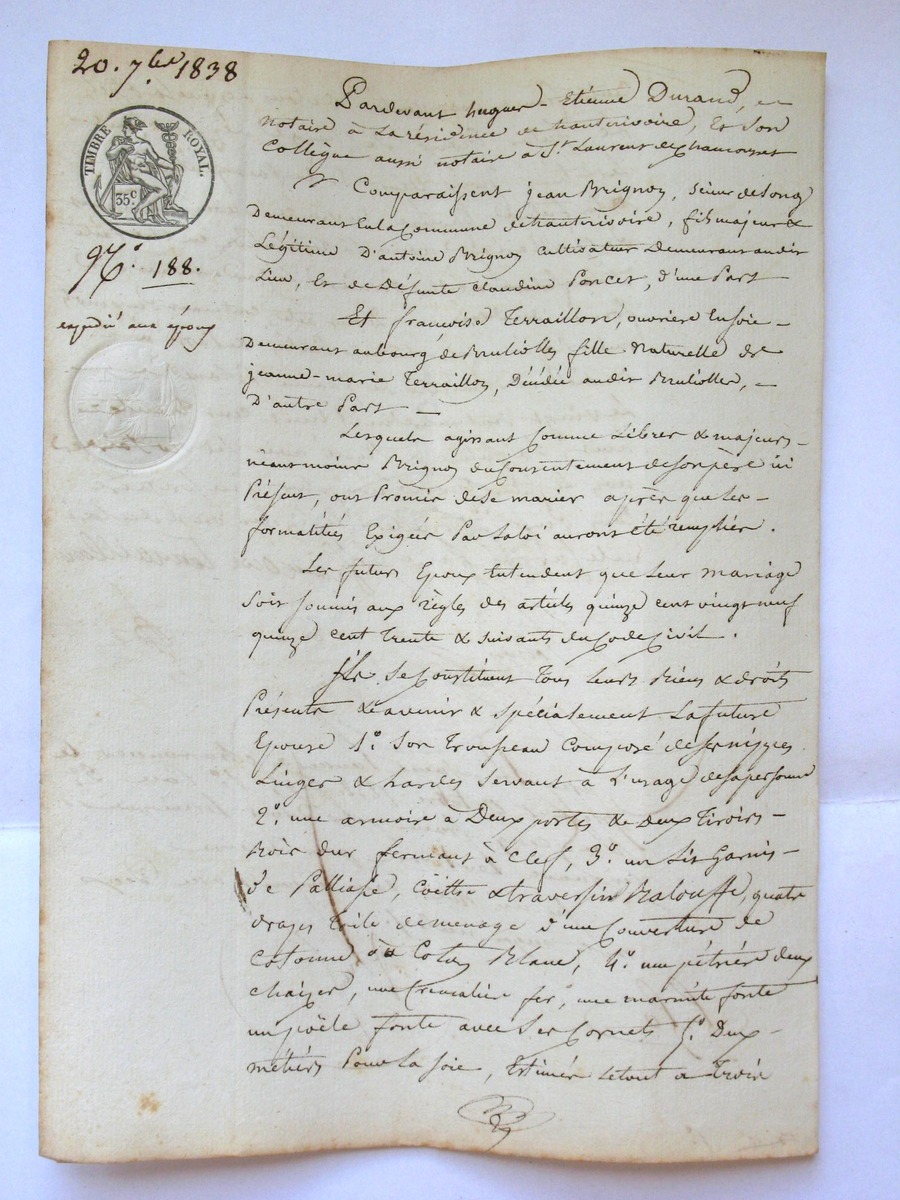 20. 7bre 1838
TIMBRE ROYAL.
35c
No. 188.
expédié aux époux
Pardevant hugues-Etienne Durand,
notaire à La résidence de hauterivoire, Et Son
Collègue aussi notaire à St. Laurent dechamousset
Comparaissent jean Brignon,
Demeurant En la Commune de hauterivoire, fils majeur &
Légitime D'antoine Brignon Cultivateur Demeurant audit
Lieu, Et de Défunte Claudine Poncet, d'une Part
Et françoise Terraillon, ouvrière En soie -
Demeurant aubourg de Brulliolles fille Naturelle de
jeanne-marie Terraillon, Décédée audit Brulliolles, -
D'autre Part -
Lesquels agissant Comme Libres & majeurs -
néantmoins Brignon du Consentement de son père ici
Présent, ont Promis de Se marier après que Les -
formalités Exigées Par La loi auront été remplies.
Les futurs Epoux Entendent que Leur mariage
Soit soumis aux règles des articles quinze cent vingt neuf
quinze cent trente & suivants du Code Civil.
ils Se Constituent Tous Leurs Biens & droits
Présents & avenir & spécialement La future
Epouse 1o. Son Trousseau Composé de Ses nippes
Linges & hardes Servant à L'usage de sa personne
2o. une armoire à Deux portes & Deux Tiroirs -
Bois dur fermant à Clef, 3o. un Lit Garnis -
de Palliasse, Coëttre & traversin Balouffe, quatre
draps toile de menage & une Couverture de
Cotonne ou Coton Blanc, 4o. une pétrière deux
chaises, une Cremalière fer, une marmite fonte
un poële fonte avec Ses Cornets 5o. Deux -
métiers Pour La soie, Estimés Letout a Trois